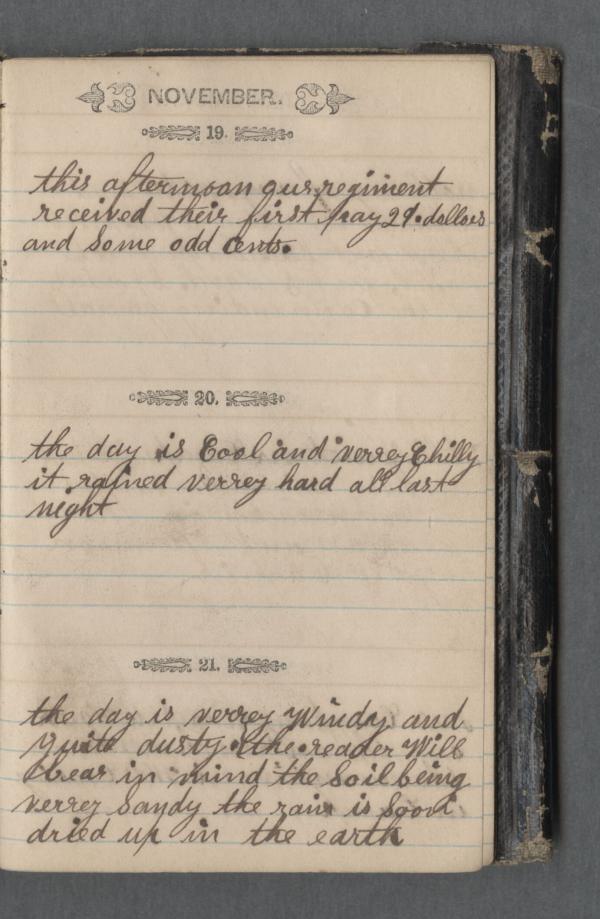 NOVEMBER.
19.
this afternoon our regiment
received their first pay 29. dollars
and Some odd cents.
20.
the day is Cool and verrey Chilly
it rained verrey hard all last
night
21.
the day is verrey Windy and
quite dusty. the reader Will
bear in mind the Soil being
verrey Sandy the rain is Soon
dried up in the earth